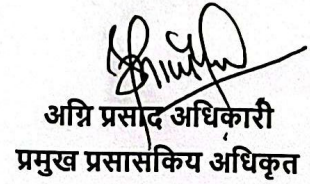 अग्नि प्रसाद अधिकारी
प्रमुख प्रसासकिय अधिकृत